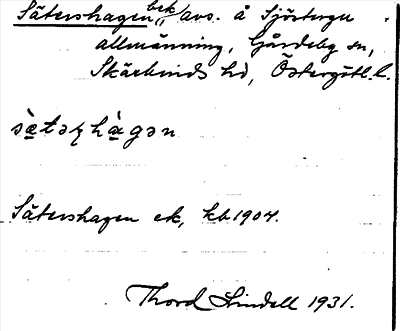 Sätershagen bek, avs. å Sjöstorgs
allmänning, Gårdeby sn,
Skärkinds hd, Östergötl. l.
sæ̀təʂhàgən
Sätershagen ek, kb. 1904.
Thord Lindell 1931.